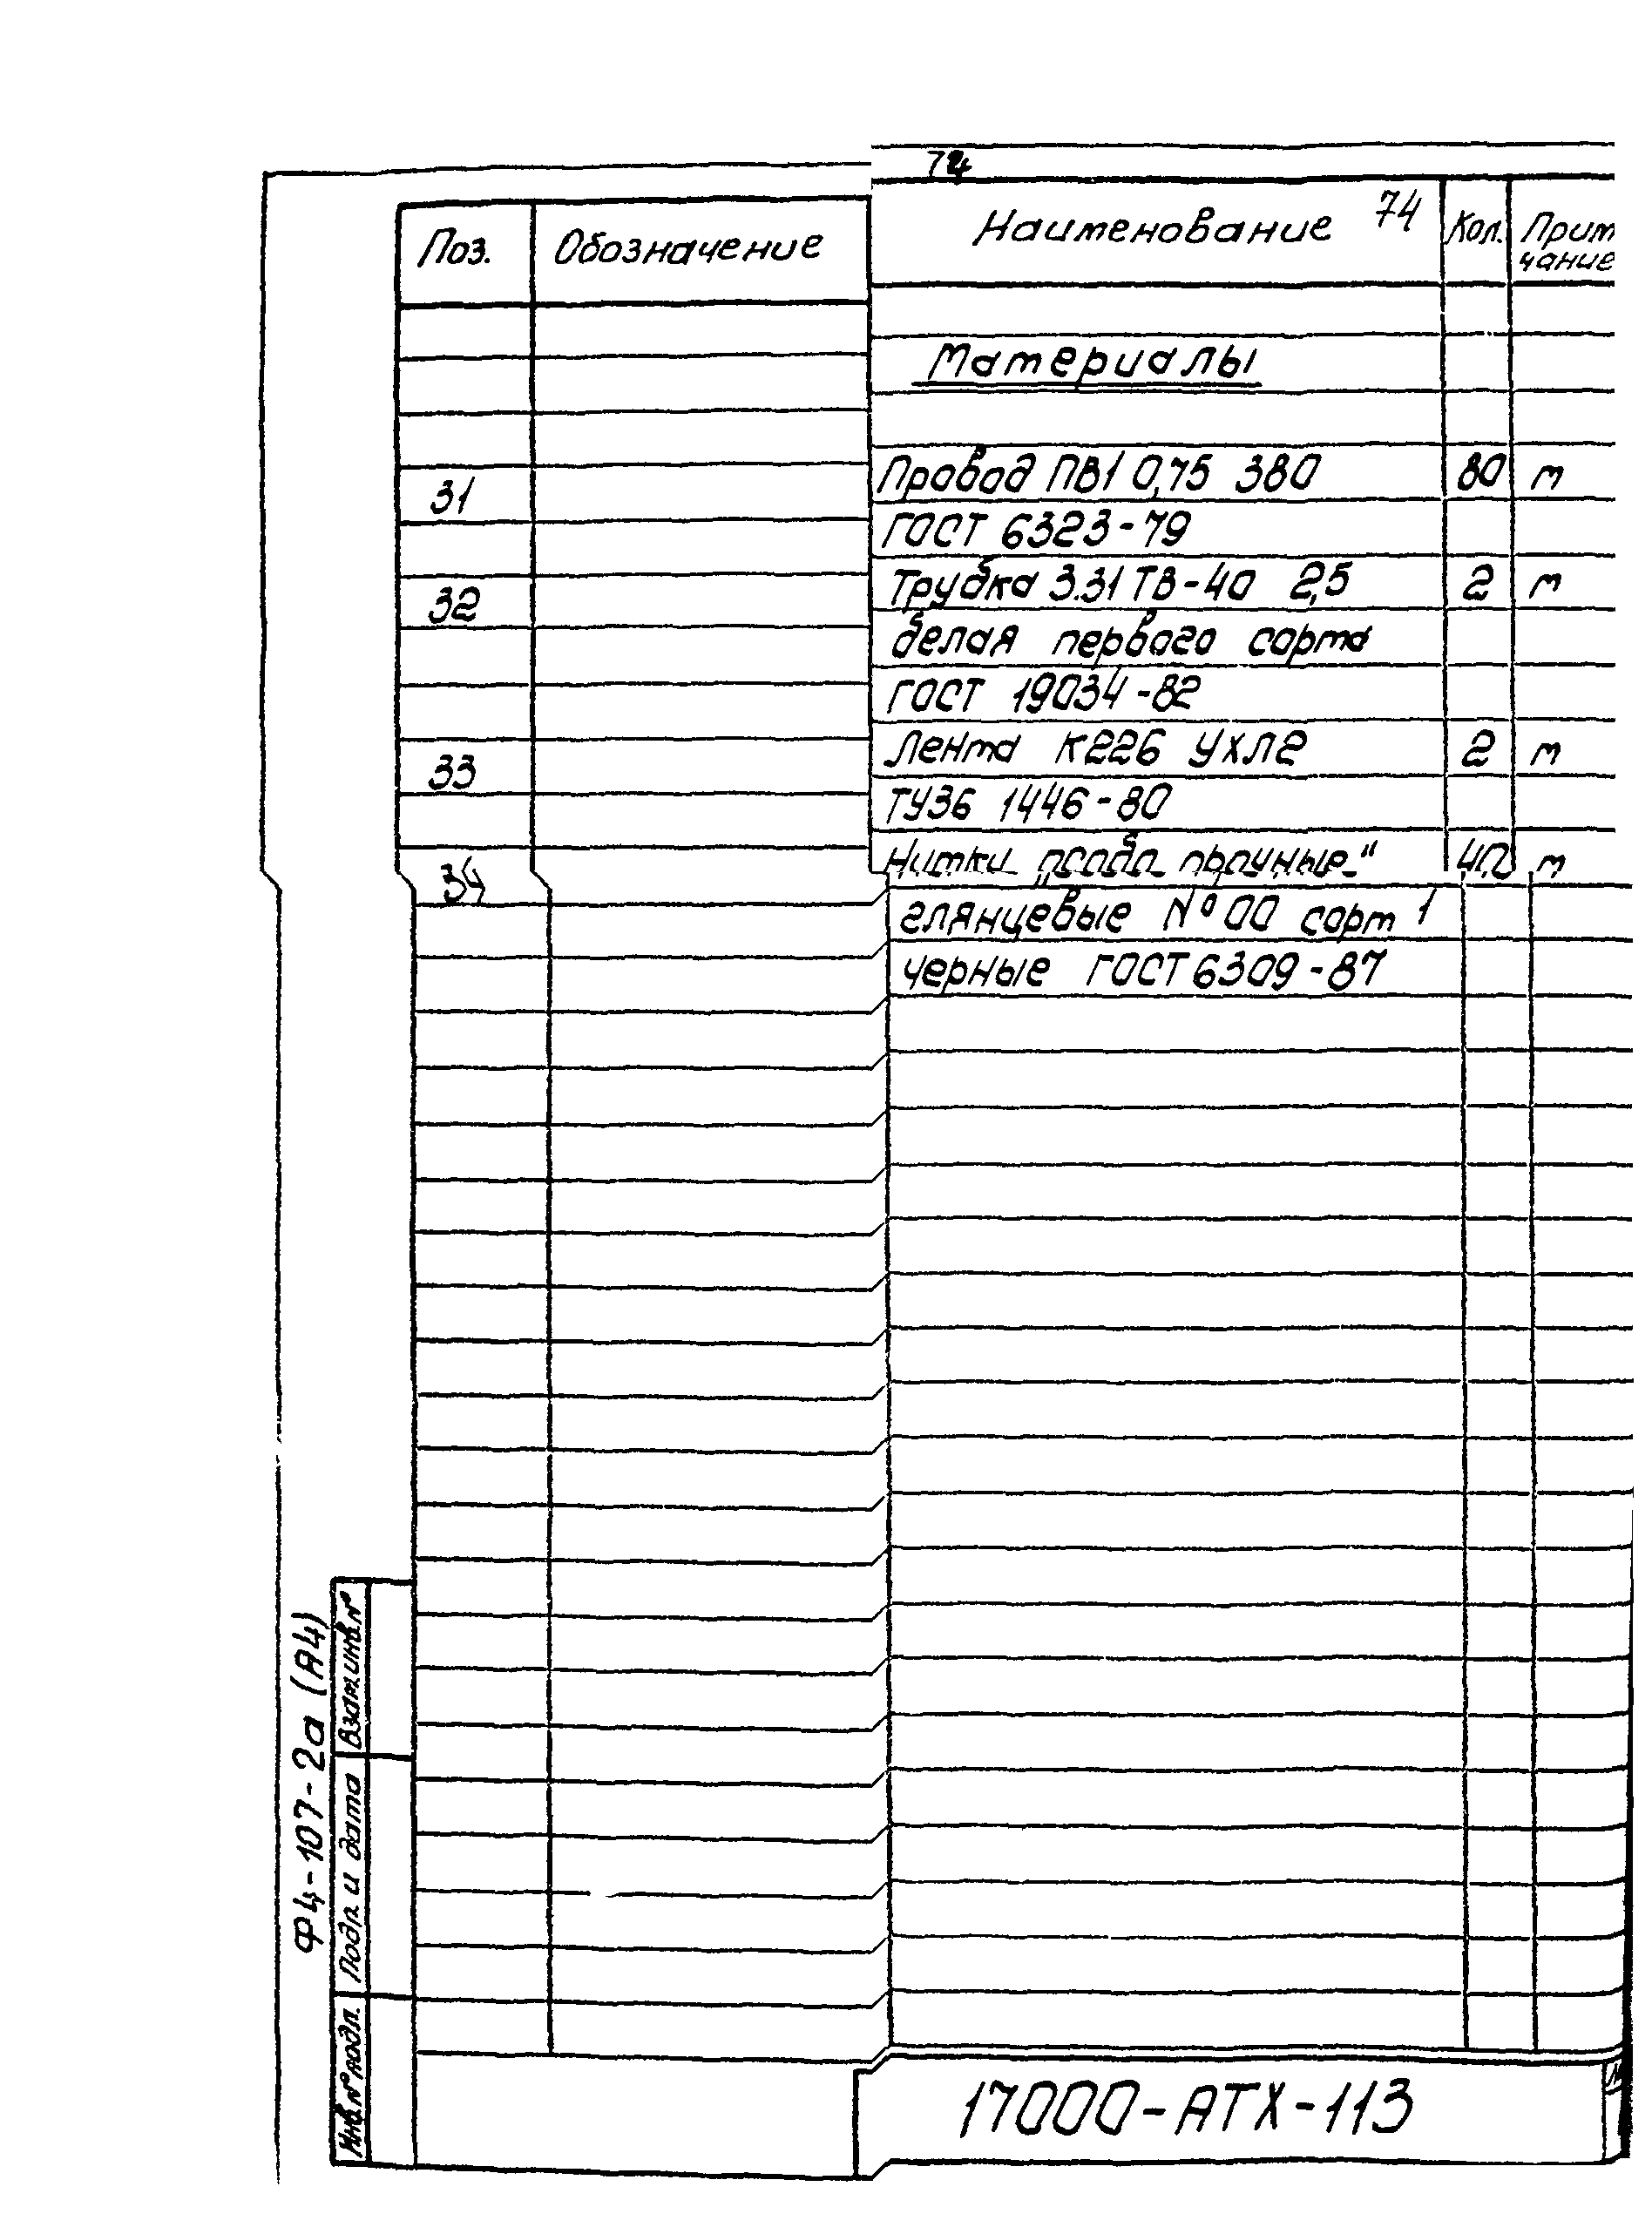 74
74
Поз. Обозначение Наименование Кол. Прим
чание
Материалы
31 Провод ПВ1 0,75 380 80 м
ГОСТ 6323-79
32 Трубка 3.31 ТВ-40 2,5 2 м
белая первого сорта
ГОСТ 19034-82
33 Лента К226 УХЛ2 2 м
ТУ36 1446-80
34 Нитки „особо прочные" 4,0 м
глянцевые №00 сорт 1
черные ГОСТ 6309-87
Ф4-107-2а (А4)
Взам.инв.№
Подп. и дата
Инв.№подл.
17000-АТХ-113